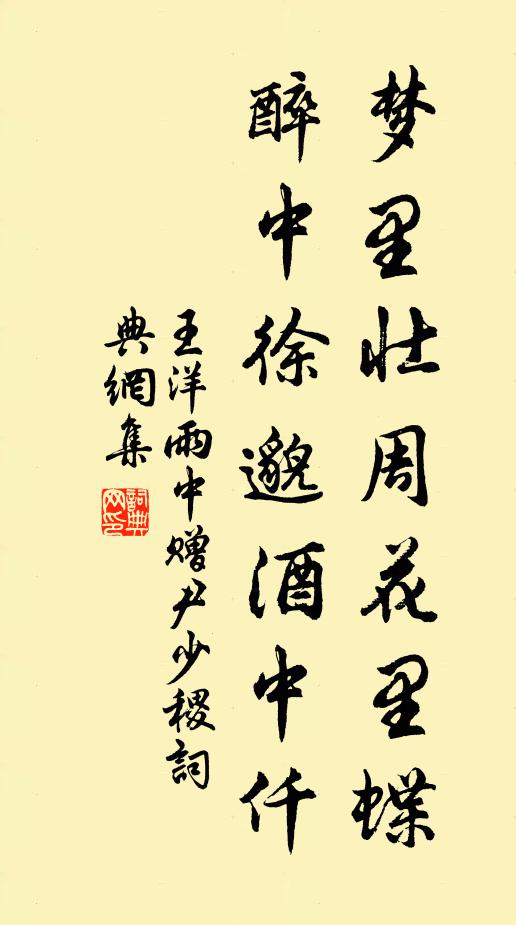 梦里壮周花里蝶
醉中徐邈酒中仟
王洋雨中赠尹少稷詞
典網集
詞典
网印